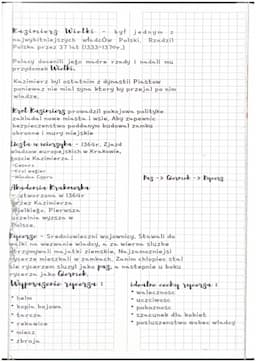 Kazimierz Wielki - był jednym z
najwybitniejszych władców Polski. Rządził
Polską przez 37 lat (1333-1370r.)
Polacy docenili jego mądre rządy i nadali mu
przydomek Wielki.
Kazimierz był ostatnim z dynastii Piastów
ponieważ nie miał syna który by przejął po nim
władzę.
Król Kazimierz prowadził pokojową politykę
zakładał nowe miasta i wsie. Aby zapewnić
bezpieczeństwo poddanym budował zamki
obronne i mury miejskie
Uczta u wierzynka - 1364r. Zjazd
władców europejskich w Krakowie,
goście Kazimierza:
-Cesarz
-Król węgier
-Władca Cypru
Paź -> Giermek -> Rycerz
Akademia Krakowska
- utworzona w 1364r
przez Kazimierza
Wielkiego. Pierwsza
uczelnia wyższa w
Polsce.
Rycerze - Średniowieczni wojownicy. Stawali do
walki na wezwanie władcy, a za wierną służbę
otrzymywali majątki ziemskie. Najzamożniejsi
rycerze mieszkali w zamkach. Zanim chłopiec stał
się rycerzem służył jako paź, a następnie u boku
rycerza jako Giermek.
Wyposażenie rycerza:
• hełm
• kopia bojowa
• tarcza
• rękawice
• miecz
• zbroja
idealne cechy rycerza:
• waleczność
• uczciwość
• pobożność
• szacunek dla kobiet
• posłuszeństwo wobec władcy